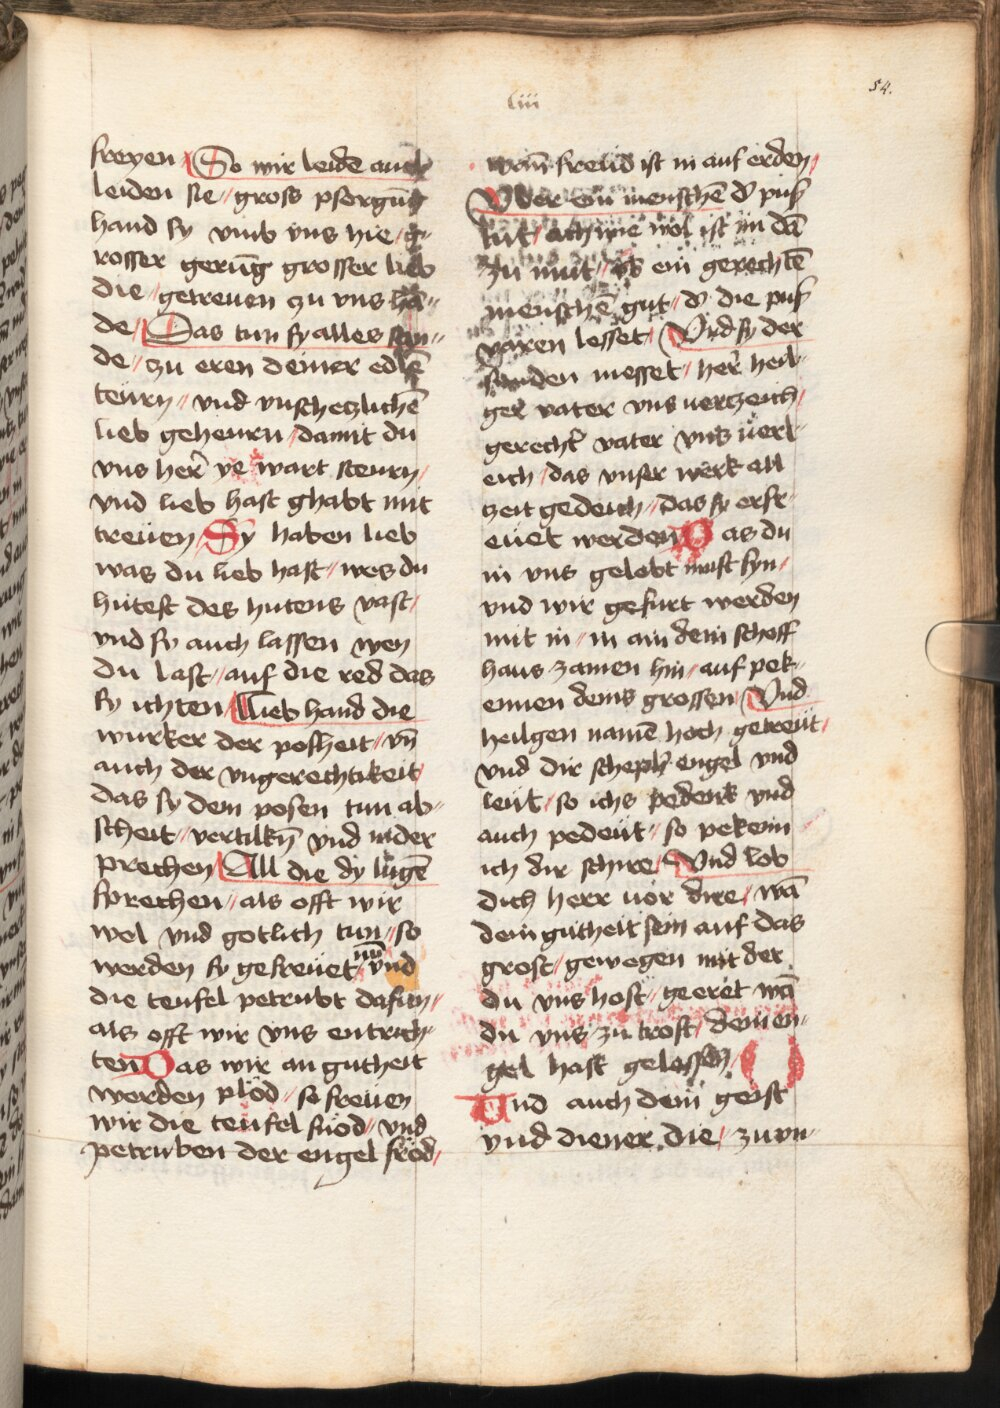 54.
liii
freyen / So wir leidē auch
leiden sie // gross psorgūg
hand sy vmb vns hie / g-
rosser gerūg grosser lieb
die / getreuen zu vns hā-
de / Das tun sy alles sein-
de / zu eren deiner edlē
teurn // vnd vnschetzlichē
lieb geheurn / damit du
vns her̄ ye wart steurn /
vnd lieb hast ghabt mit
treüen / Sy haben lieb
was du lieb hast / wes du
hütest des hutens vast /
vnd sy auch lassen wen
du last // auf die red das
sy ichten / Lieb hand die
wurker der posheit / vn̄
auch der vngerechtikeit /
das sy dem posen tun ab-
scheit // vertilkn̄ vnd nider
prechen / All die dy lugē
sprechen // als offt wir
wol vnd gotlich tun // so
werden sy gefreuet // nū vnd
die teufel petrubt dasein /
als offt wir vns entrich-
ten Das wir an gutheit
werden plöd // so freuen
wir die teufel snöd // vnd
petruben der engel fröd /
wan̄ freud ist in auf erden /
Vber ein menschē d' pus
tut / ach wie wol ist im dā
zu mut // ob ein gerechtē
menschē gut // d' die pus
varen lesset / Vnd sy der
sunden messet // her̄ heil-
ger vater vns uerzeich /
gerecht' vater vns uerl-
eich / das vnser werk all
zeit gedeich // das sy erfr-
eüet werden Das du
in vns gelobt must syn /
vnd wir gefurt werden
mit in // in ain dein schoff
haus zamen hin // auf pek-
ennen deins grossen / Vnd
heilgen namē hoch getreüt /
vnd dir scheph' engel vnd
leüt / so ichs pedenk vnd
auch pedeüt // so pekenn
ich dir schire / Vnd lob
dich herr uor dire / wā
dein gutheit sein auf das
grost / gewegen mit der
du vns host // geeret wā
du vns zu trost / dein en-
gel hast gelassen /
Vnd auch dein geist
vnd diener die / zu vn-